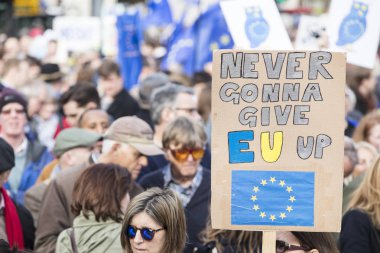 NEVER
GONNA
GIVE
EU UP